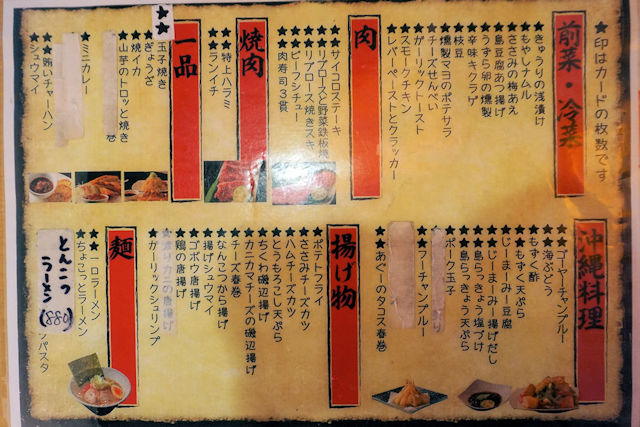 ★印はカードの枚数です
前菜・冷菜
★きゅうりの浅漬け
★もやしナムル
★ささみの梅あえ
★島豆腐あつ揚げ
★うずら卵の燻製
★辛味キクラゲ
★枝豆
★燻製マヨのポテサラ
★チーズせんべい
★ガーリックトースト
★スモークチキン
★レバーペーストとクラッカー
肉
★サイコロステーキ
★リブロースと野菜鉄板焼
★リブロース焼きスキ
★ビーフシチュー
★肉寿司3貫
焼肉
★★特上ハラミ
★★ランイチ
一品
★★
玉子焼き
★ぎょうざ
★焼イカ
★山芋のトロッと焼き
巻
★ミニカレー
★★賄いチャーハン
★シュウマイ
沖縄料理
★★ゴーヤーチャンプルー
★★海ぶどう
★もずく酢
★もずく天ぷら
★じーまーみー豆腐
★じーまーみー揚げだし
★島らっきょう塩づけ
★島らっきょう天ぷら
★ポーク玉子
り
★フーチャンプルー
★★あぐーのタコス春巻
揚げ物
★ポテトフライ
★ささみチーズカツ
★ハムチーズカツ
★とうもろこし天ぷら
★ちくわ磯辺揚げ
★カニカマチーズの磯辺揚げ
★チーズ春巻
★なんこつから揚げ
★揚げシュウマイ
★ゴボウ唐揚げ
★鶏の唐揚げ
の唐揚げ
★ガーリックシュリンプ
麺
★★一口ラーメン
★★ちょこっとラーメン
とんこつ
ラーメン
(880)
パスタ